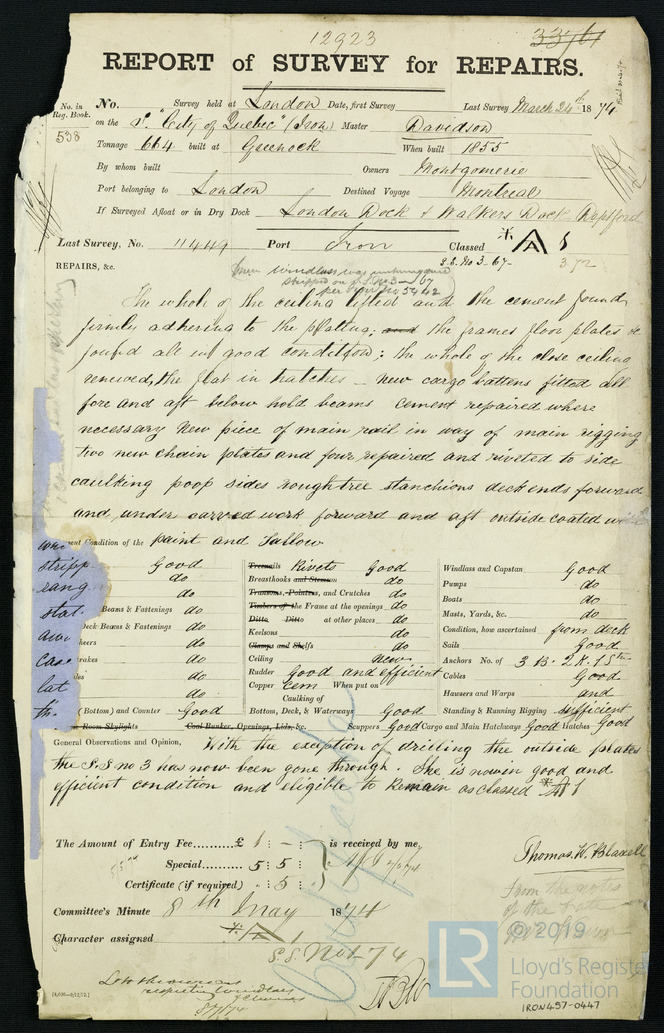 12923
3376
REPORT of SURVEY for REPAIRS.
No. in Reg. Book.
538
No. Survey held at London Date, first Survey Last Survey March 24th 1874
on the S. "City of Quebec" (Iron) Master Davidson
Tonnage 664 built at Greenock When built 1855
By whom built Owners Montgomerie
Port belonging to London Destined Voyage Montreal
If Surveyed Afloat or in Dry Dock London Dock & Walkers Dock Deptford
Last Survey, No. 11449 Port Iron Classed A 1
S.S. No 3-67- 3.72
REPAIRS, &c.
The whole of the ceiling lifted and the cement found
firmly adhering to the plating; and the frames floor plates &c
found all in good condition; the whole of the close ceiling
renewed, the flat in hatches - new cargo battens fitted all
fore and aft below hold beams cement repaired where
necessary New piece of main rail in way of main rigging
two new chain plates and four repaired and riveted to side
caulking poop sides roughtree stanchions deck ends forward
and under carved work forward and aft outside coated with
Condition of the paint and Tallow
stripp Good Treenails Rivets Good Windlass and Capstan Good
rang do Breasthooks and Stemson do Pumps do
do Transoms, Pointers, and Crutches do Boats do
stat Beams & Fastenings do Timbers of the Frame at the openings do Masts, Yards, &c. do
Deck Beams & Fastenings do Ditto Ditto at other places do Condition, how ascertained from deck
do Keelsons do Sails Good
do Clamps and Shelfs do Anchors No. of 3 B. 2 K. 1 Stm
do Ceiling New Cables Good
lat do Rudder Good and efficient Hausers and Warps and
Copper Cem When put on
(Bottom) and Counter Good Caulking of Bottom, Deck, & Waterways Good Standing & Running Rigging sufficient
Room Skylights Coal Bunker, Openings, Lids, &c. Scuppers Good Cargo and Main Hatchways Good Hatches Good
General Observations and Opinion, With the exception of drilling the outside plates
the S.S no 3 has now been gone through. She is now in good and
efficient condition and eligible to Remain as classed A 1
The Amount of Entry Fee..........£ 1 : - : is received by me,
Special.......... 5 : 5 :
Certificate (if required) . : 5 :
Thomas W. Blaxell
from the notes
of the late
Committee's Minute 8th May 1874
Character assigned A 1
S.S. No1-74
© 2019
LR
Lloyd's Register
Foundation
IRON457-0447